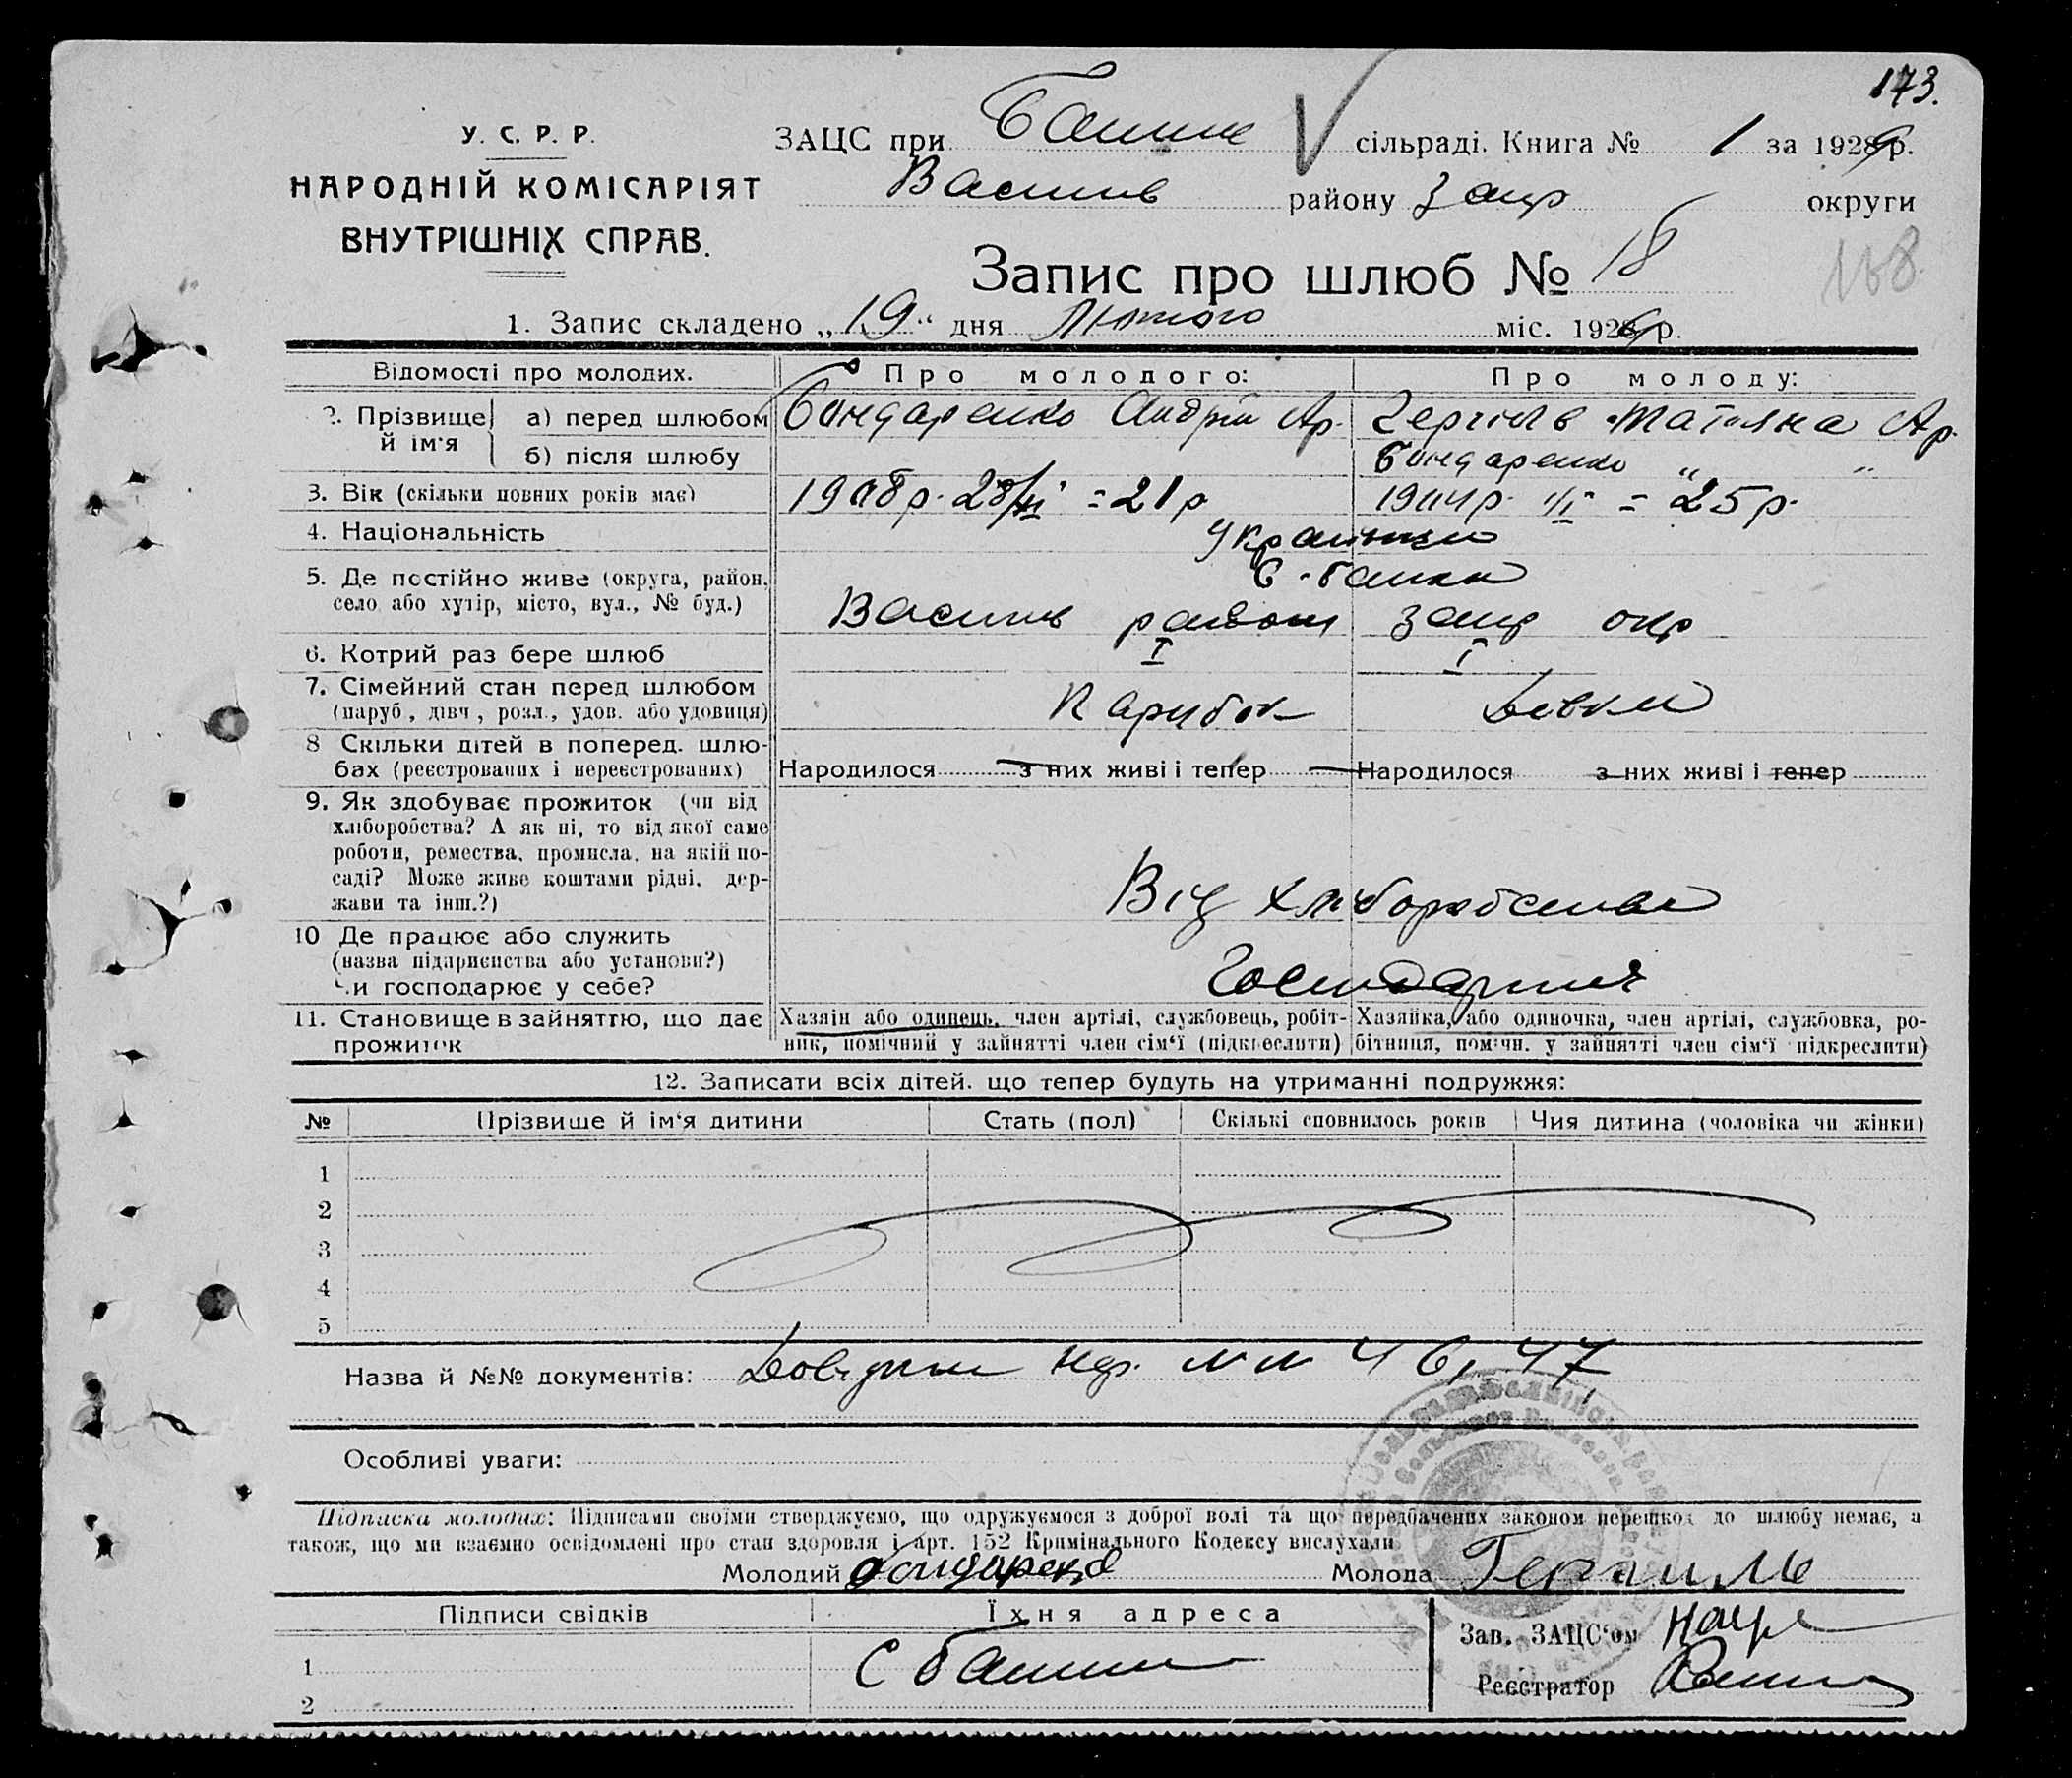 173.
У. С. Р. Р.
НАРОДНІЙ КОМІСАРІЯТ
ВНУТРІШНІХ СПРАВ.
ЗАЦС при сільраді. Книга № 1 за 1929 р.
Васшв району Запр округи
Запис про шлюб № 18
168.
1. Запис складено „19“ дня Лютого міс. 1929 р.
Відомості про молодих. Про молодого: Про молоду:
2. Прізвище й ім'я а) перед шлюбом Бондаренко Андрій Ар. Татяна Ар.
б) після шлюбу Бондаренко " "
3. Вік (скільки повних років має) 1908 р. 28/XI = 21 р 1904 р. 1/I = 25 р.
4. Національність Українци
5. Де постійно живе (округа, район, село або хутір, місто, вул., № буд.) С.
район Запр окр
6. Котрий раз бере шлюб I I
7. Сімейний стан перед шлюбом (паруб, дівч, розл., удов. або удовиця) Парубок Дівка
8 Скільки дітей в поперед. шлюбах (реєстрованих і нереєстрованих) Народилося з них живі і тепер Народилося з них живі і тепер
9. Як здобуває прожиток (чи від хліборобства? А як ні, то від якої саме роботи, ремества, промисла, на якій посаді? Може живе коштами рідні, держави та інш.?) Від хліборобства
10 Де працює або служить (назва підприєнства або установи?) Чи господарює у себе?
11. Становище в зайняттю, що дає прожиток Хазяїн або одинець, член артілі, службовець, робітник, помічний у зайнятті член сім'ї (підкреслити) Хазяйка, або одиночка, член артілі, службовка, робітниця, помічн. у зайнятті член сім'ї підкреслити)
12. Записати всіх дітей. що тепер будуть на утриманні подружжя:
№ Прізвище й ім'я дитини Стать (пол) Скількі сповнилось років Чия дитина (чоловіка чи жінки)
1
2
3
4
5
Назва й №№ документів: 46, 47,
Особливі уваги:
Підписка молодих: Підписами своїми стверджуємо, що одружуємося з доброї волі та що передбачених законом перешкод до шлюбу немає, а
також, що ми взаємно освідомлені про стан здоровля і арт. 152 Кримінального Кодексу вислухали
Молодий Бондаренко Молода
Підписи свідків Їхня адреса
Зав. ЗАЦС'ом
1 С
Реєстратор
2